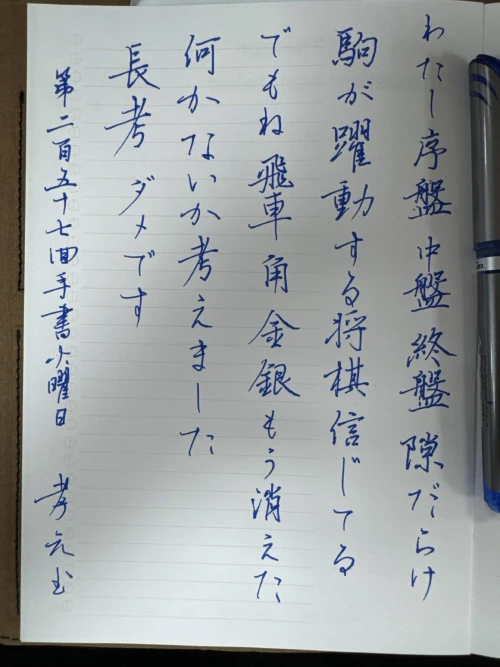 わたし序盤中盤終盤隙だらけ
駒が躍動する将棋信じてる
でもね飛車角金銀もう消えた
何かないか考えました
長考ダメです
第二百五十七回手書火曜日